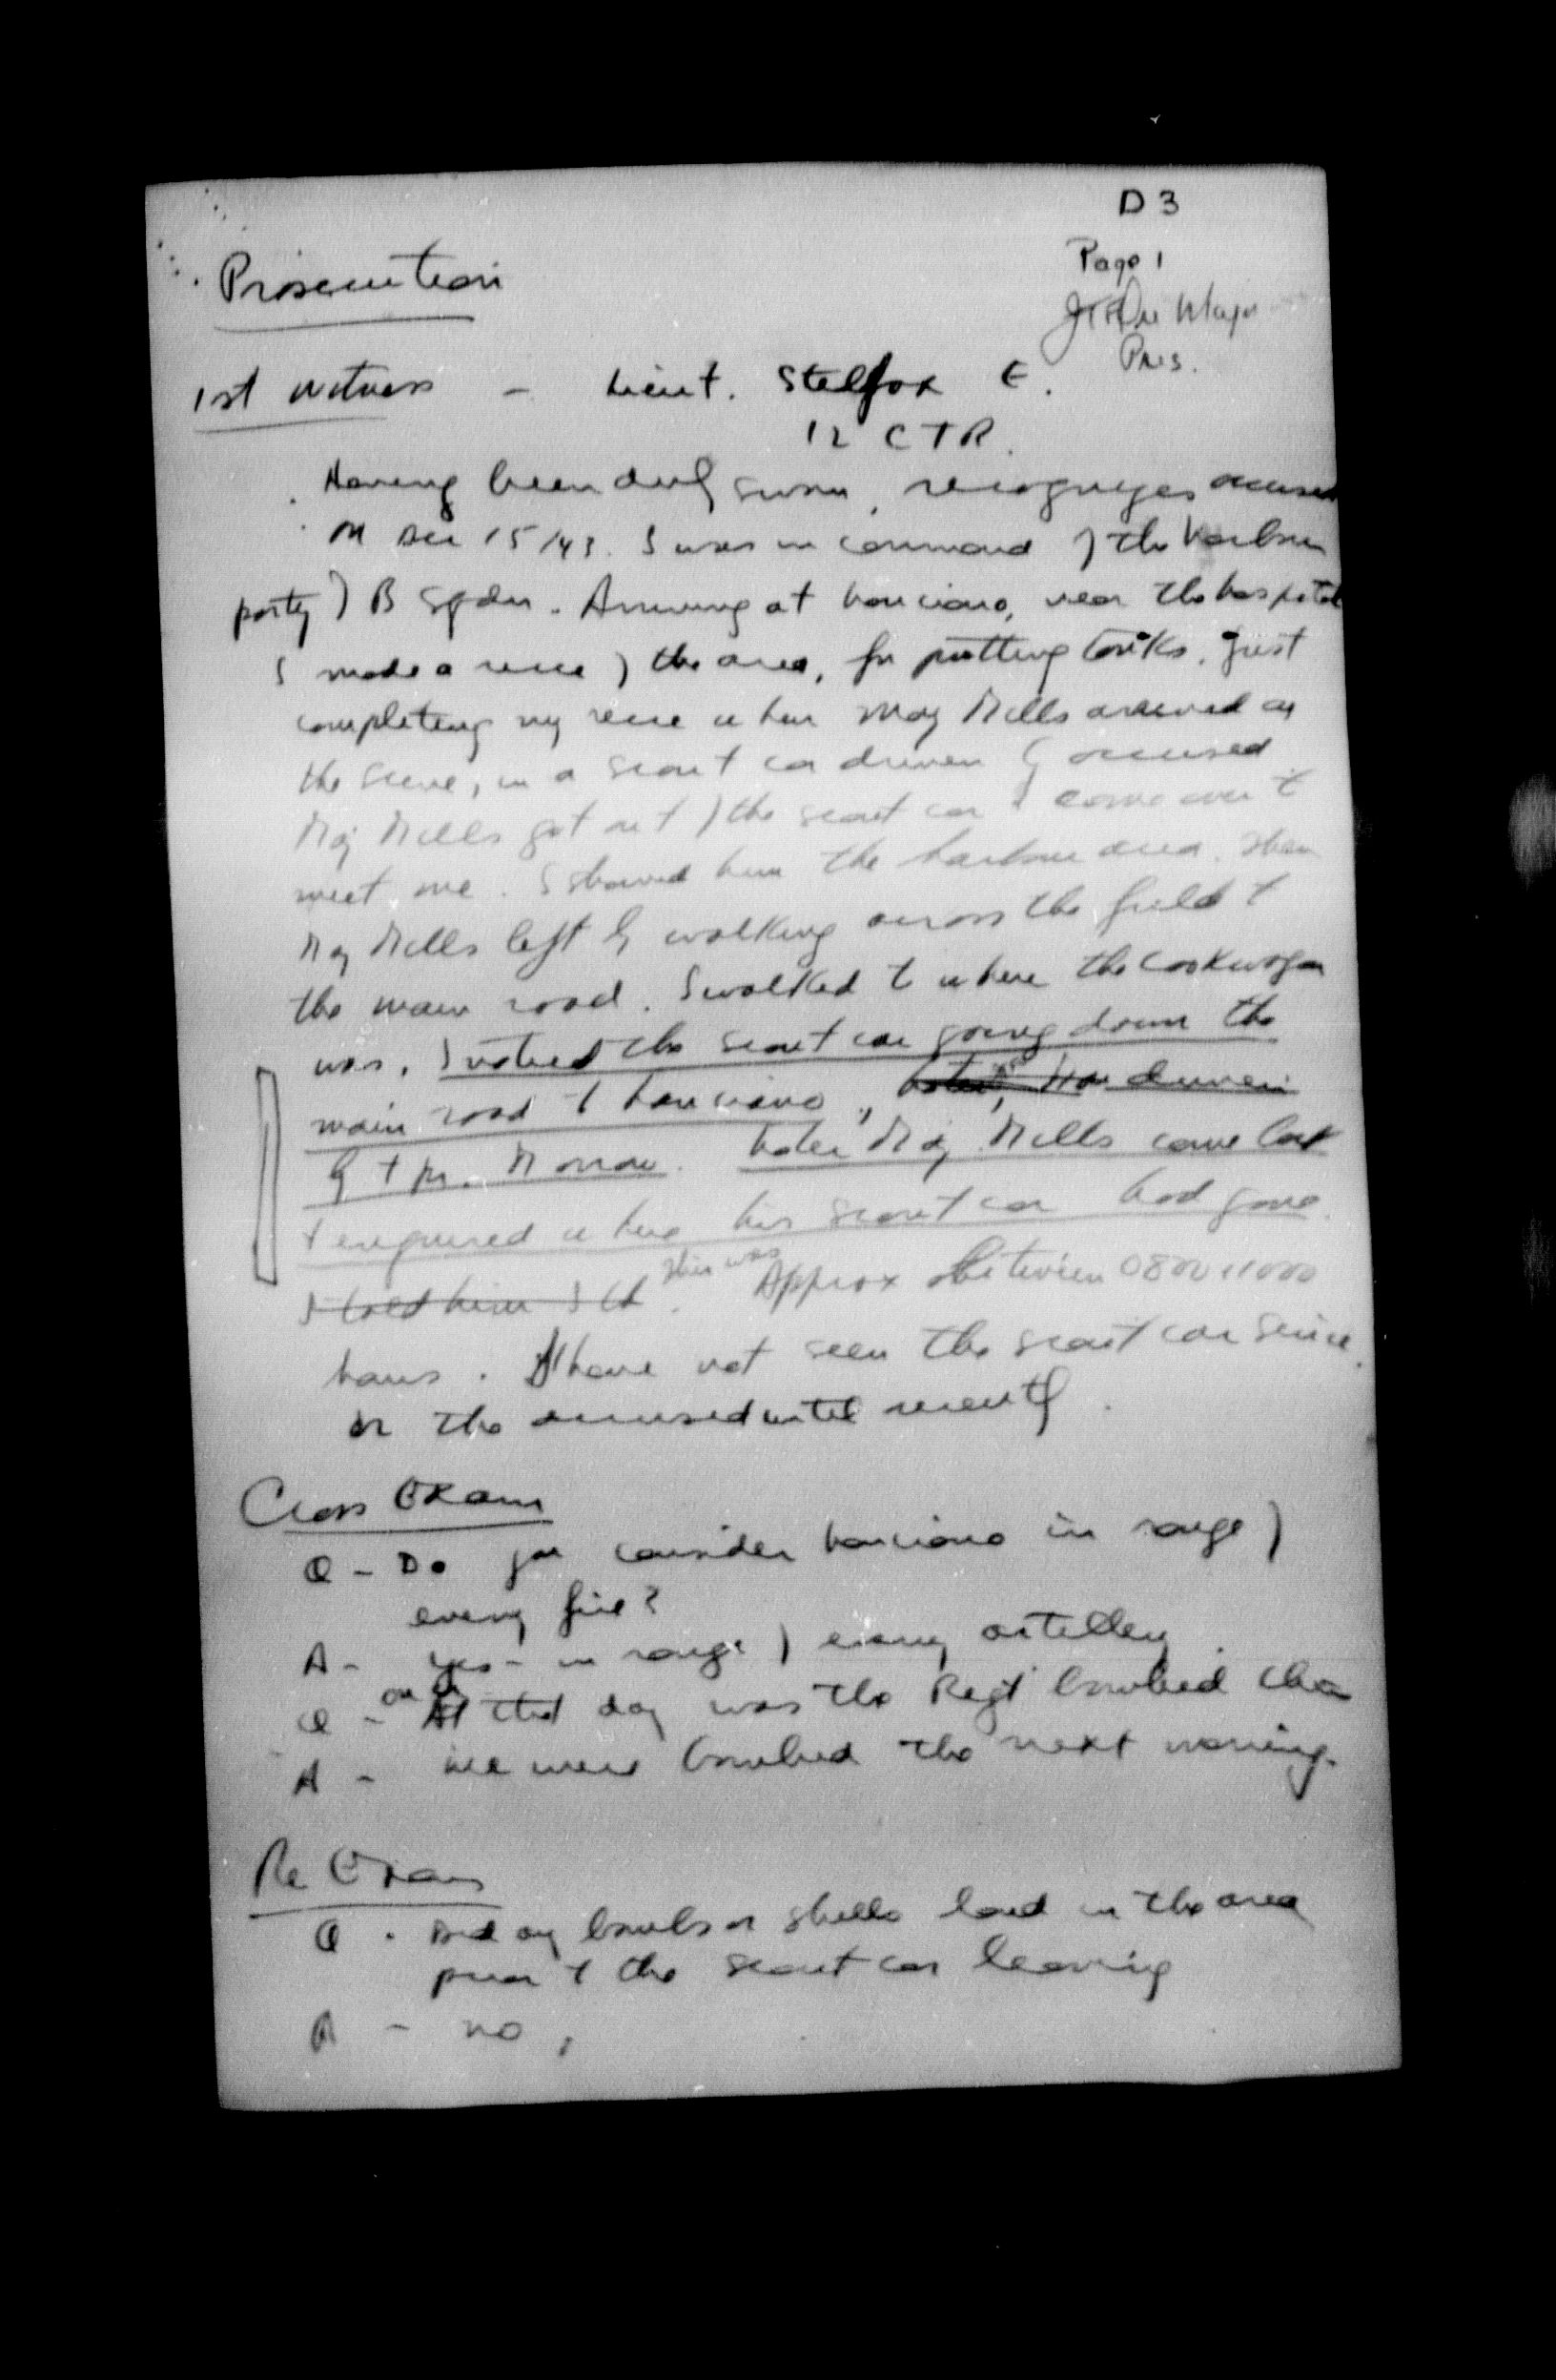 D 3
Page 1
Prosecution
Major
Pres.
1st Witness - Lieut. Stelfox E.
12 CTR.
Having been duly sworn, recognizes accused
On Dec 15/43. I was in command of the harbour
party of B Sqdn. Arriving at Lanciano, near the hospital
I made a recce of the area, for putting tanks. Just
completing my recce when Maj Mills arrived on
the scene, in a scout car driven by accused.
Maj Mills got out of the scout car & came over to
meet me. I showed him the harbour area. Then
Maj Mills left by walking across the field to
the main road. I walked to where the cookwagon
was. I noticed the scout car going down the
main road to Lanciano, Later, was driven
by Tpr. Morrow. Later Maj. Mills came back
& enquired where his scout car had gone.
I told him I
This was
Approx between 0800 1000
hours. I have not seen the scout car since.
or the accused until recently.
Cross Exam
Q - Do you consider Lanciano in range of
enemy fire?
A - Yes - in range of enemy artillery.
on
Q - At that day was the Regt bombed there
A - We were bombed the next morning.
Re Exam
Q - Did any bombs or shells land in the area
prior to the scout car leaving
A - no.